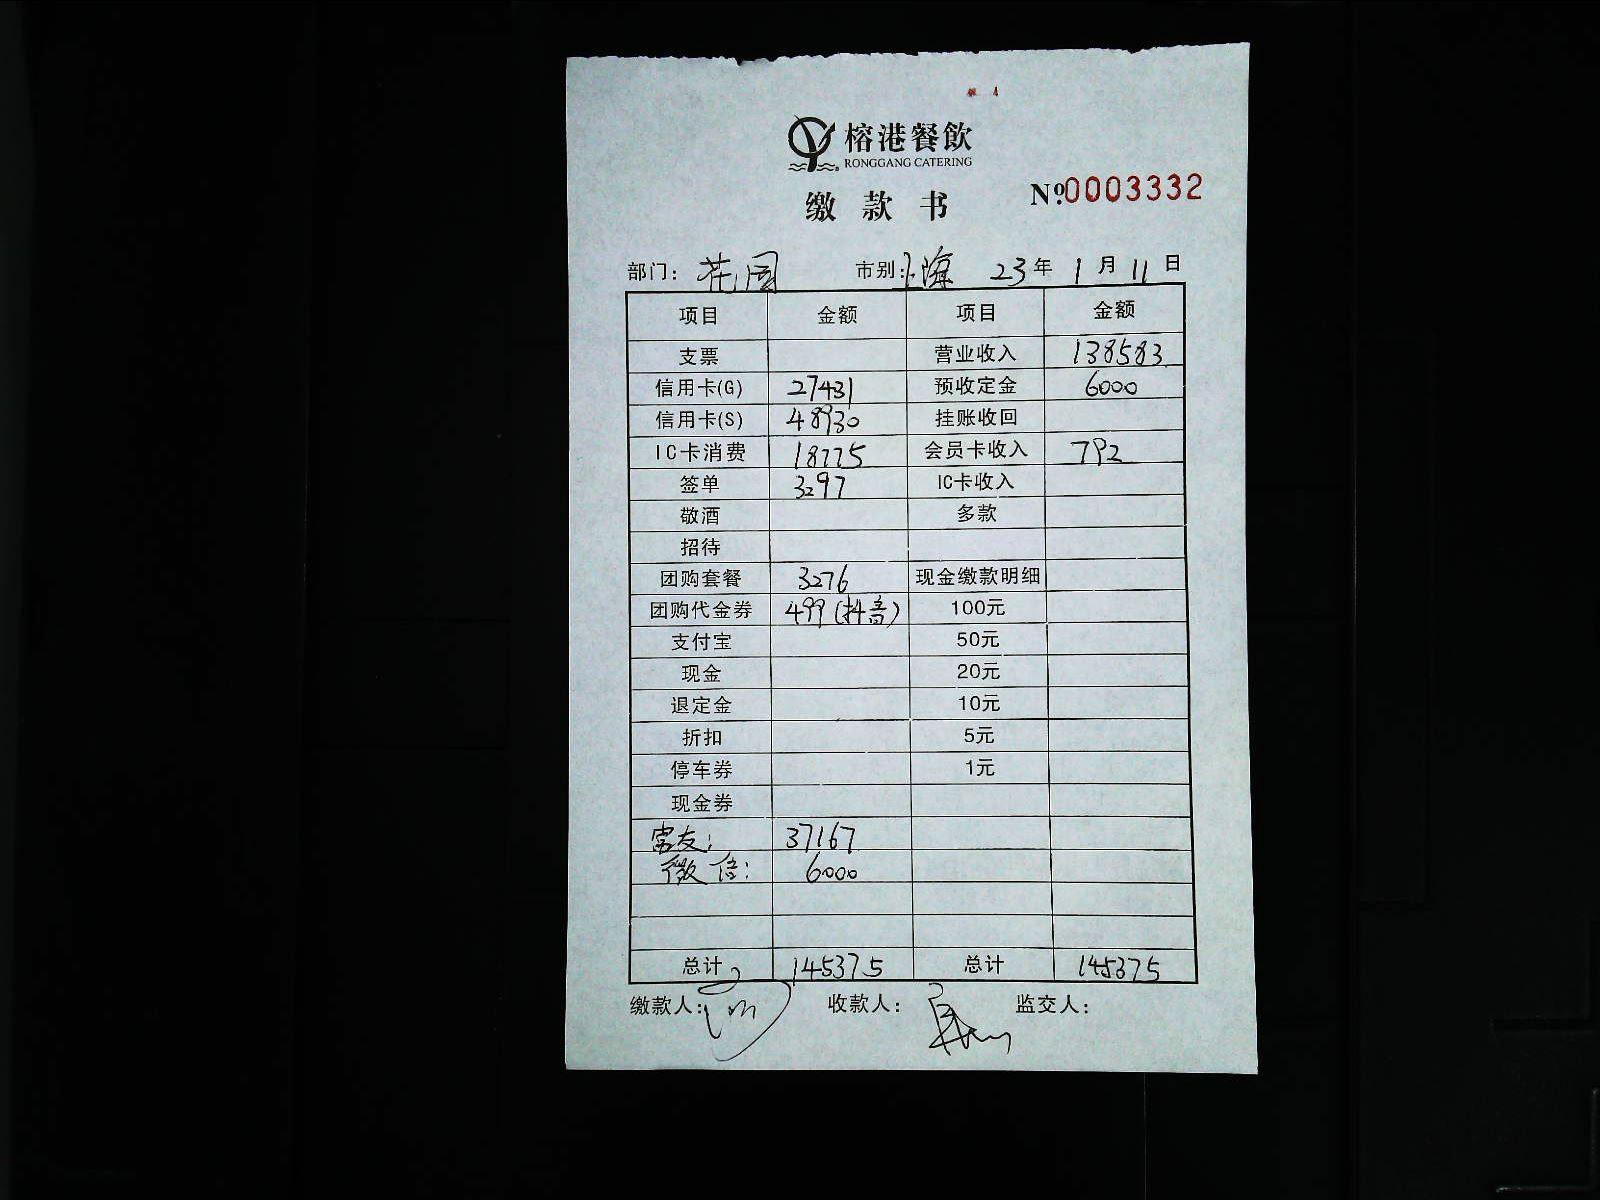 榕港餐飲
RONGGANG CATERING
缴款书 №0003332
部门：花园 市别：上海 23年1月11日
项目 金额 项目 金额
支票 营业收入 138583
信用卡(G) 27431 预收定金 6000
信用卡(S) 48930 挂账收回
IC卡消费 18775 会员卡收入 792
签单 3297 IC卡收入
敬酒 多款
招待
团购套餐 3276 现金缴款明细
团购代金券 499(抖音) 100元
支付宝 50元
现金 20元
退定金 10元
折扣 5元
停车券 1元
现金券
37167
微信： 6000
总计 145375 总计 145375
缴款人： 收款人： 监交人：